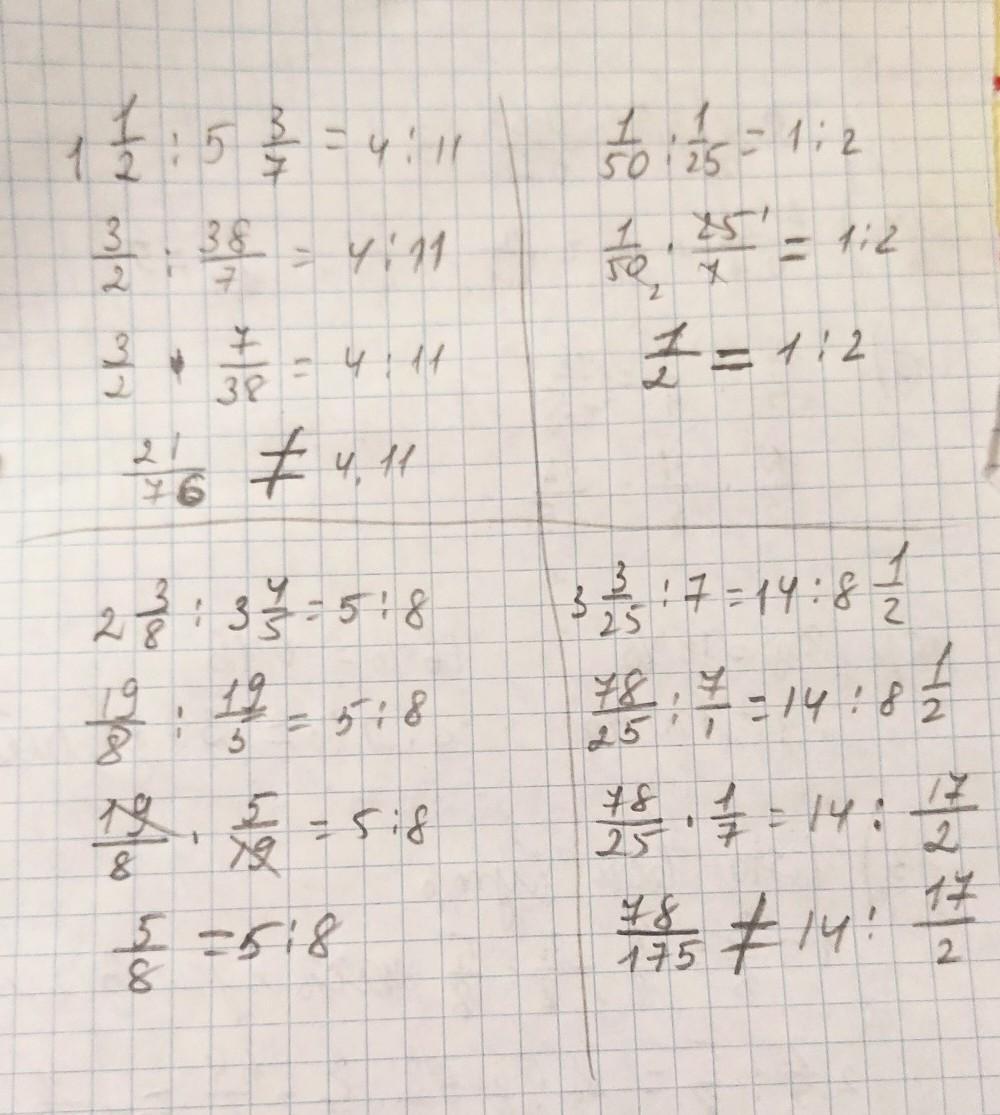 1 1/2 : 5 3/7 = 4 : 11
3/2 : 38/7 = 4 : 11
3/2 · 7/38 = 4 : 11
21/76 ≠ 4. 11
1/50 : 1/25 = 1 : 2
1/50 2 · 25 1/1 = 1 : 2
1/2 = 1 : 2
2 3/8 : 3 4/5 = 5 : 8
19/8 : 19/5 = 5 : 8
19/8 · 5/19 = 5 : 8
5/8 = 5 : 8
3 3/25 : 7 = 14 : 8 1/2
78/25 : 7/1 = 14 : 8 1/2
78/25 · 1/7 = 14 : 17/2
78/175 ≠ 14 : 17/2